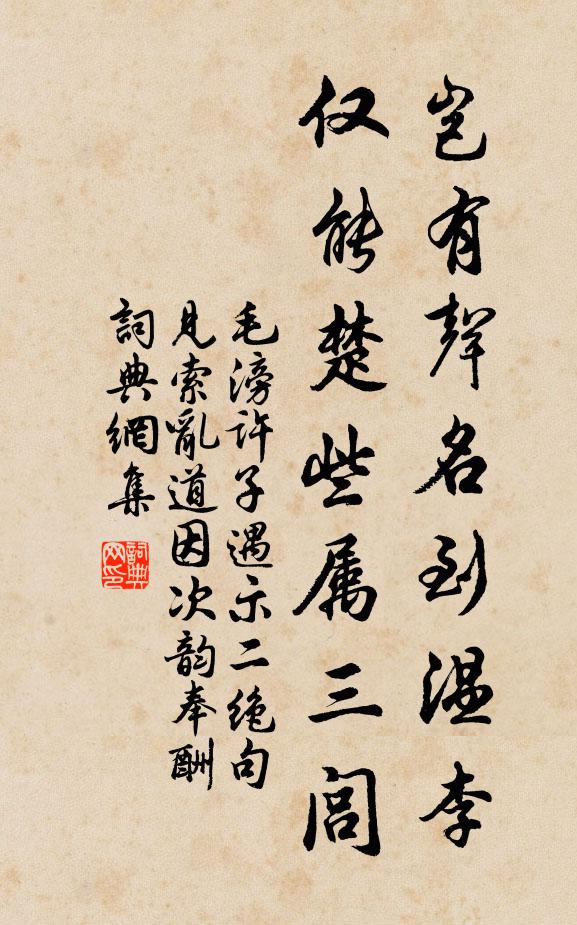 岂有聲名到温李
仅能楚些属三闾
毛滂许子遇示二绝句
見索亂道因次韵奉酬
詞典網集
詞典网印